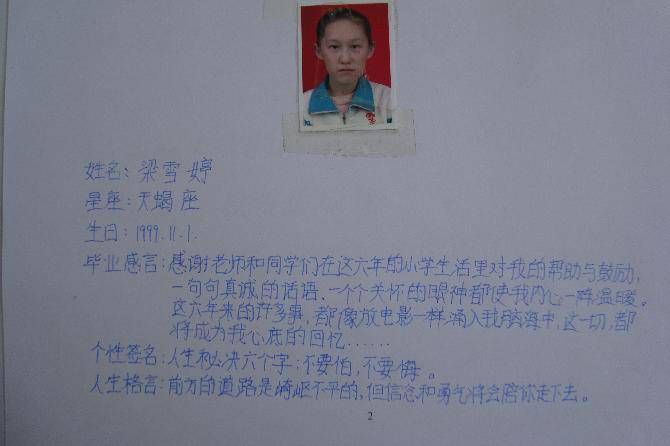 姓名：梁雪婷
星座：天蝎座
生日：1999.11.1.
毕业感言：感谢老师和同学们在这六年的小学生活里对我的帮助与鼓励，
一句句真诚的话语、一个个关怀的眼神都使我内心一阵温暖。
这六年来的许多事，都像放电影一样涌入我脑海中，这一切，都
将成为我心底的回忆……
个性签名：人生秘决六个字：不要怕，不要悔。
人生格言：前方的道路是崎岖不平的，但信念和勇气将会陪你走下去。
2